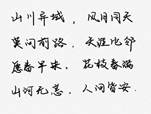 山川异域，风月同天
莫问前路，天涯比邻
愿春早来，花枝春满
山河无恙，人间皆安.